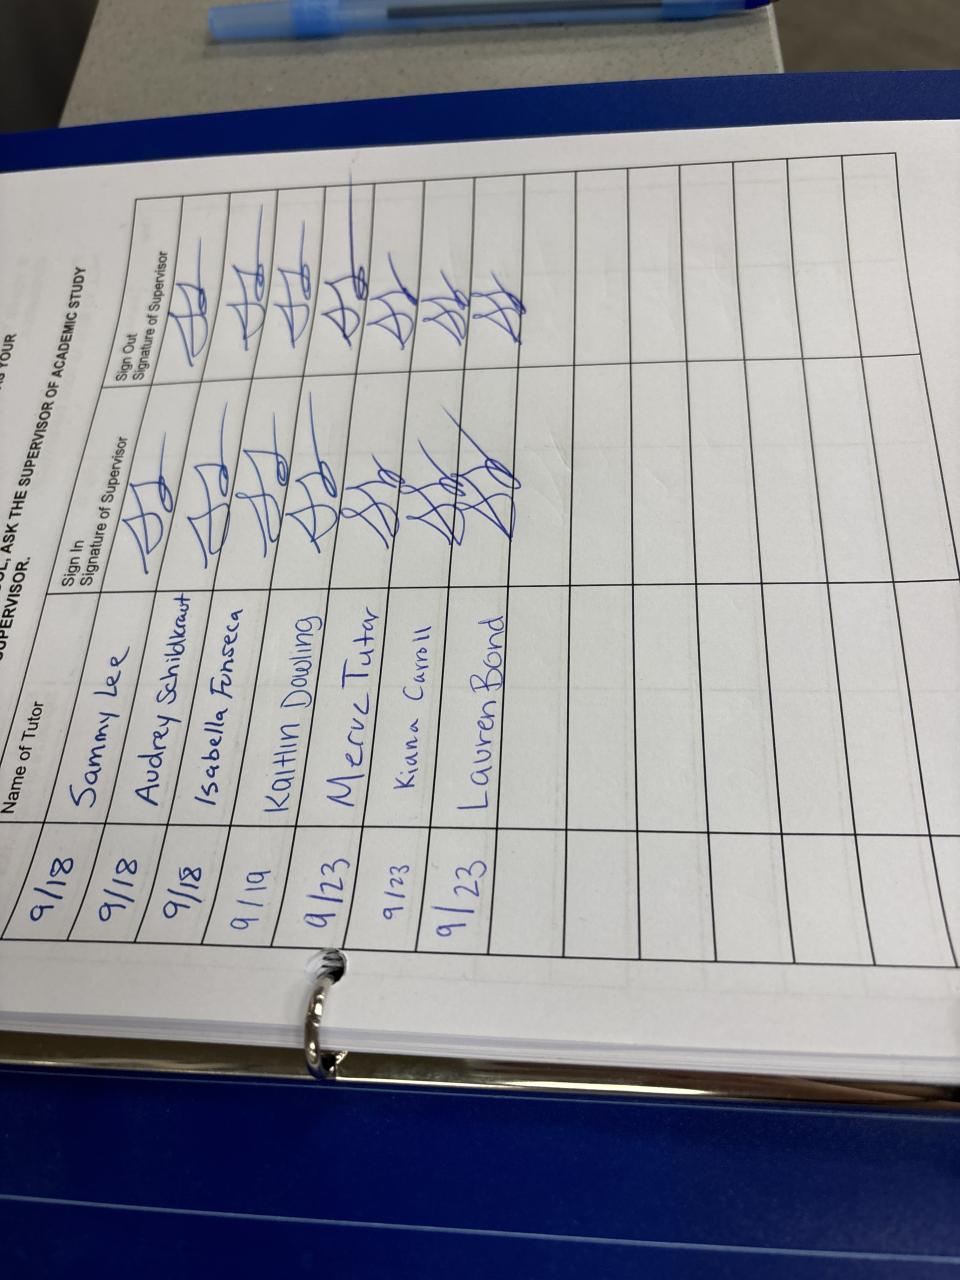 AS YOUR
, ASK THE SUPERVISOR OF ACADEMIC STUDY
SUPERVISOR.
Name of Tutor
Sign In
Signature of Supervisor
Sign Out
Signature of Supervisor
9/18 Sammy Lee
9/18 Audrey Schildkraut
9/18 Isabella Fonseca
9/19 Kaitlin Dowling
9/23 Merve Tutar
9/23 Kiana Carroll
9/23 Lauren Bond